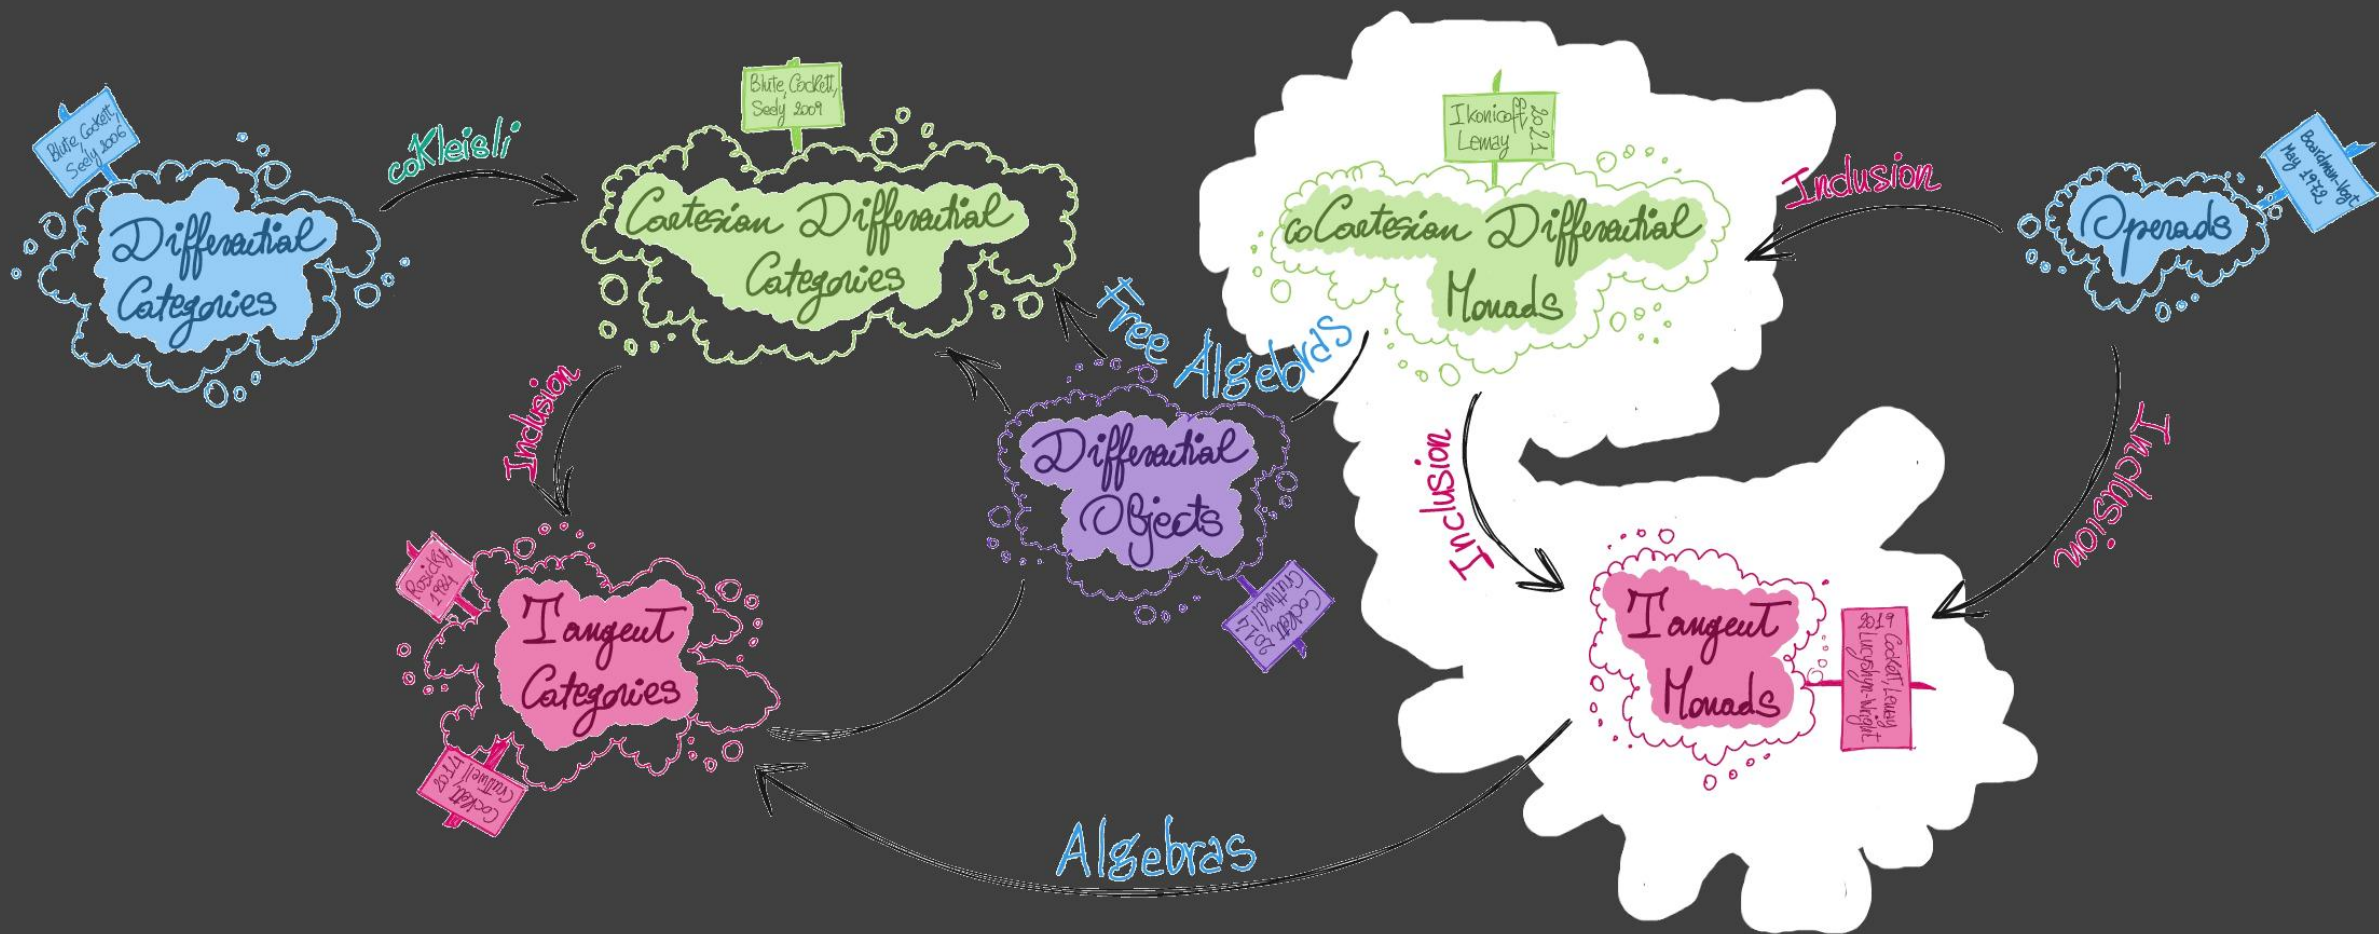 Blute, Cockett,
Seely 2006
Differential
Categories
coKleisli
Blute, Cockett,
Seely 2009
Cartesian Differential
Categories
Ikonicoff
Lemay
2021
coCartesian Differential
Monads
Inclusion
Boardman-Vogt
May 1972
Operads
Free
Algebras
Inclusion
Differential
Objects
Cockett
Cruttwell
2014
Inclusion
Inclusion
Rosický
1984
Tangent
Categories
Cockett,
Cruttwell
2014
Tangent
Monads
2019 Cockett, Lemay
Lucyshyn-Wright
Algebras